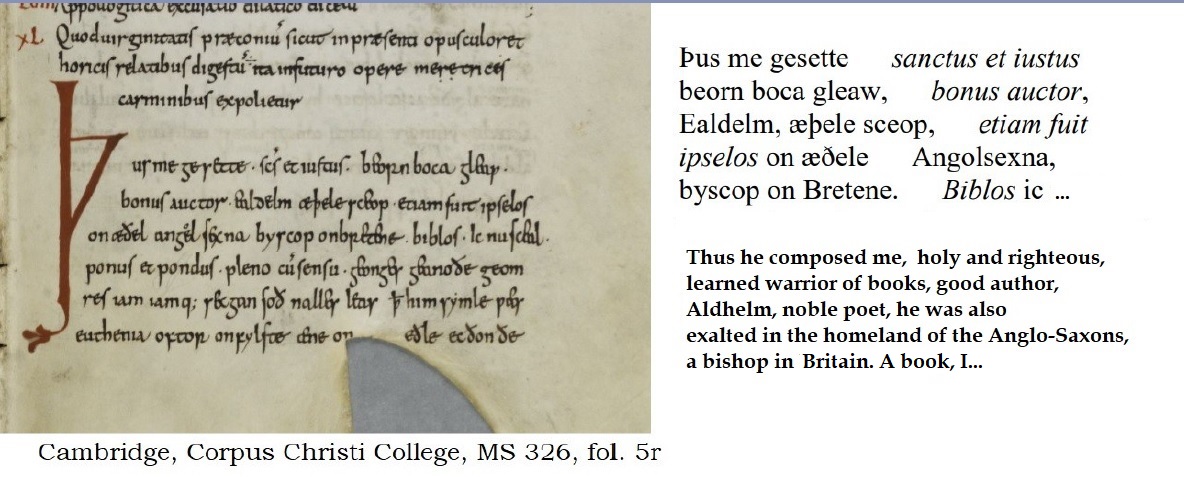 xL Quod uirginitatis præconiū sicut in præsenti opusculo ret
horicis relatibus digestū ita in futuro opere
carminibus expolietur
Þus me gesette · scs̄ et iustus. beorn boca gleaw.
bonus auctor. ealdelm æþele sceop. etiam fuit ipselos
on æðel angel sexna byscop on bretene. biblos. Ic nu sceal.
ponus et pondus. pleno cū sensu. geonges geanoðe geom
res iam iamq; secgan soð nalles leas þ̄ him symle wæs
euthenia oftor on fylste æne on eðle ec ðon ðe
Cambridge, Corpus Christi College, MS 326, fol. 5r
Þus me gesette sanctus et iustus
beorn boca gleaw, bonus auctor,
Ealdelm, æþele sceop, etiam fuit
ipselos on æðele Angolsexna,
byscop on Bretene. Biblos ic ...
Thus he composed me, holy and righteous,
learned warrior of books, good author,
Aldhelm, noble poet, he was also
exalted in the homeland of the Anglo-Saxons,
a bishop in Britain. A book, I...